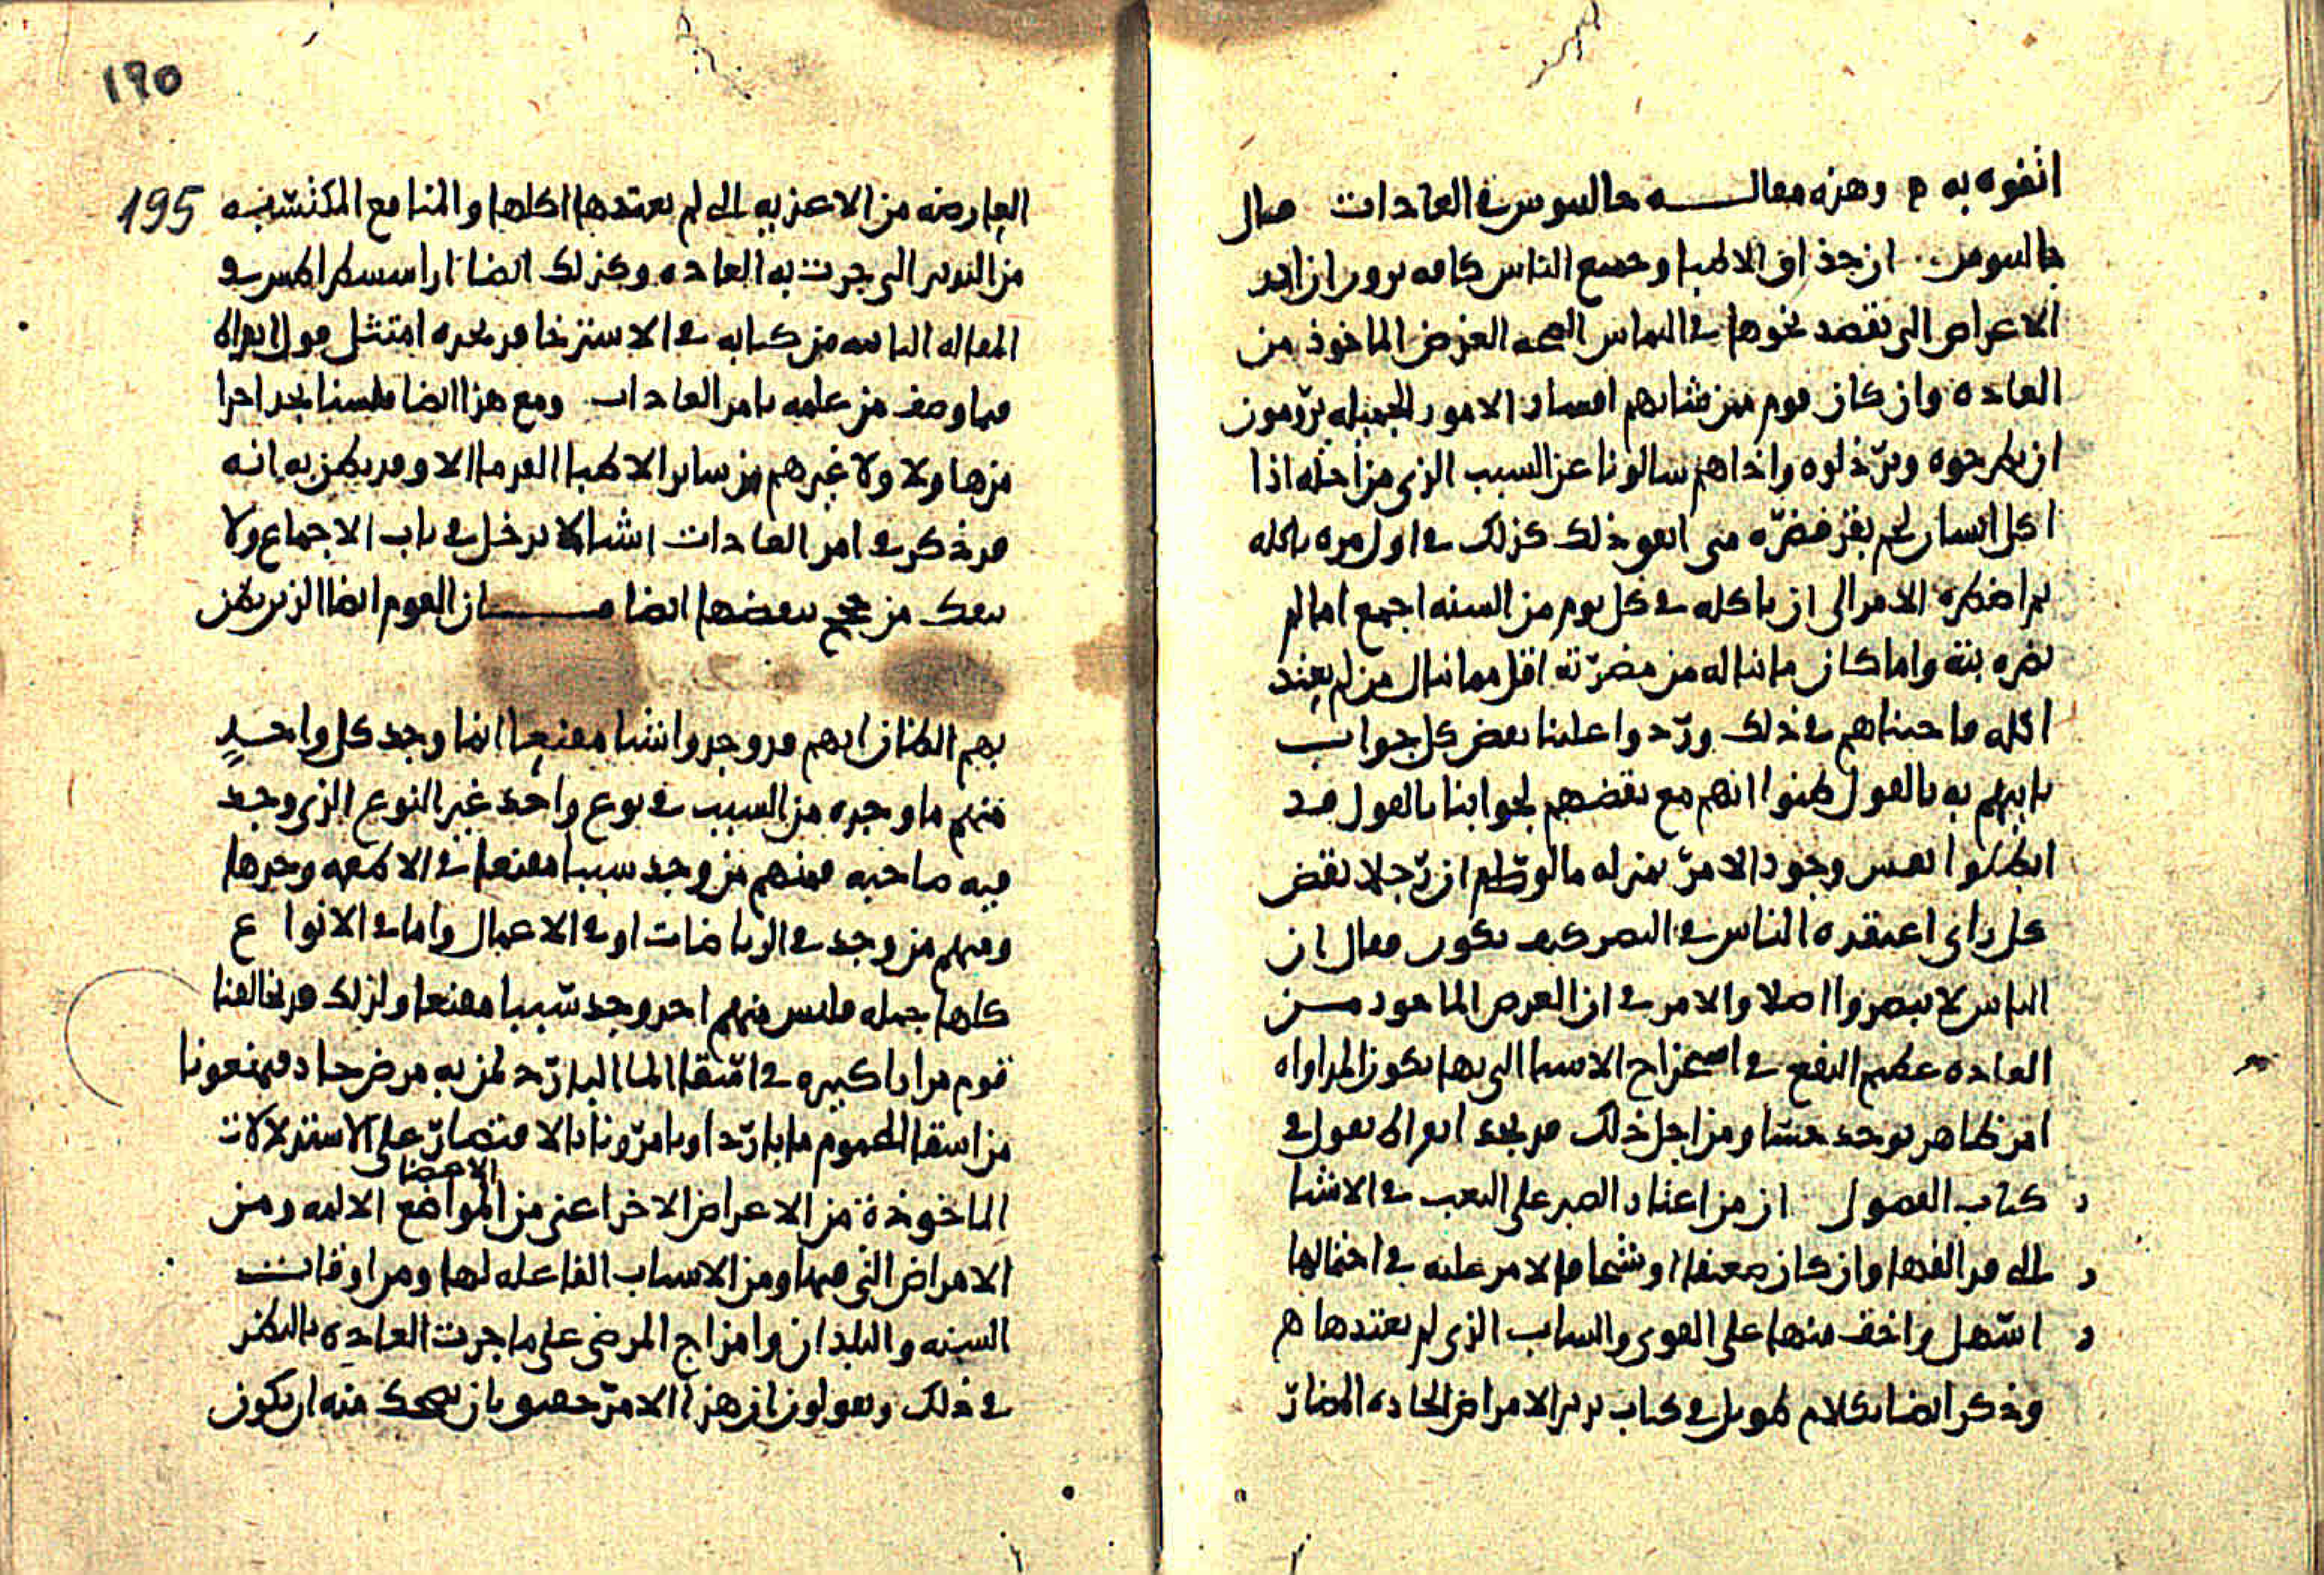 اتفوه به وهذه مقالــــه جالينوس في العادات قال
جالينوس ان حذاق الاطبا وجميع الناس كافه يرون ان احد
الاعراض التي تقصد نحوها في التماس الصحه الغرض الماخوذ من
العاده وان كان قوم من شانهم افساد الامور الجميله يرومون
ان يطرحوه ويرذلوه واذا هم سالونا عن السبب الذي من اجله اذا
اكل انسان لحم بقر فضره متى اتفق ذلك كذلك في اول مره ياكله
ثم اضطره الامر الى ان ياكله في كل يوم من السنه اجمع اما لم
يضره بته واما كان ما يناله من مضرته اقل مما ينال من لم يعتد
اكله فاجبناهم في ذلك وردوا علينا نقض كل جواب
ناتيهم به بالقول ظنوا انهم مع نقضهم لجوابنا بالقول قد
ابطلوا نفس وجود الامر بمنزله ما لو ان رجلا نقض
كل راي اعتقده الناس في البصر كيف يكون فقال ان
الناس لا يبصروا اصلا والامر في ان الغرض الماخوذ مــن
العاده عظيم النفع في استخراج الاشيا التي بها يكون المداواه
امر ظاهر يوجد حسا ومن اجل ذلك قد نجد ابقراط يقول في
كتاب الفصول ان من اعتاد الصبر على التعب في الاشيا
التي قد الفها وان كان ضعيفا او شيخا فالامر عليه في احتمالها
اسهل واخف منها على القوي والشاب الذي لم يعتدها
وذكر ايضا بكلام طويل في كتاب تدبير الامراض الحاده المضار
١٩٥
195
العارضه من الاغذيه التي لم يعتدها اكلها والمنافع المكتسبه
من التدبير التي جرت به العاده وكذلك ايضا ارا سسطراطس في
المقاله الثانيه من كتابه في الاسترخا قد نجده امتثل قول ابقراط
فيما وصف من علمه بامر العادات ومع هذا ايضا فلسنا نجد احدا
من هاولا ولا غيرهم من ساير الاطبا القدما الا وقد يظن به انه
قد ذكر في امر العادات اشيا لا يدخل في باب الاجماع ولا
ينفك من حجج بعضها ايضا فــــان القوم ايضا الذين يظن
بهم الظان انهم قد وجدوا شيا مقنعا انما وجد كل واحــد
منهم ما وجده من السبب في نوع واحد غير النوع الذي وجد
فيه صاحبه فمنهم من وجد سببا مقنعا في الاطعمه وحدها
ومنهم من وجد في الرياضات او في الاعمال واما في الانواع
كلها جمله فليس منهم احد وجد سببا مقنعا ولذلك قد يخالفنا
قوم مرارا كثيره في اسقا الما البارد لمن به مرض حاد فيمنعونا
من اسقا المحموم ما باردا ويامرونا بالاقتصار على الاستدلالات
الماخوذة من الاعراض الاخر اعني من المواضع الاليه ومن
الاعضا
الامراض التي فيها ومن الاسباب الفاعله لها ومن اوقات
السنه والبلدان وامزاج المرضى على ما جرت العاده بالنظر
في ذلك ويقولون ان هذا الامر حقيق بان يضحك منه ان يكون